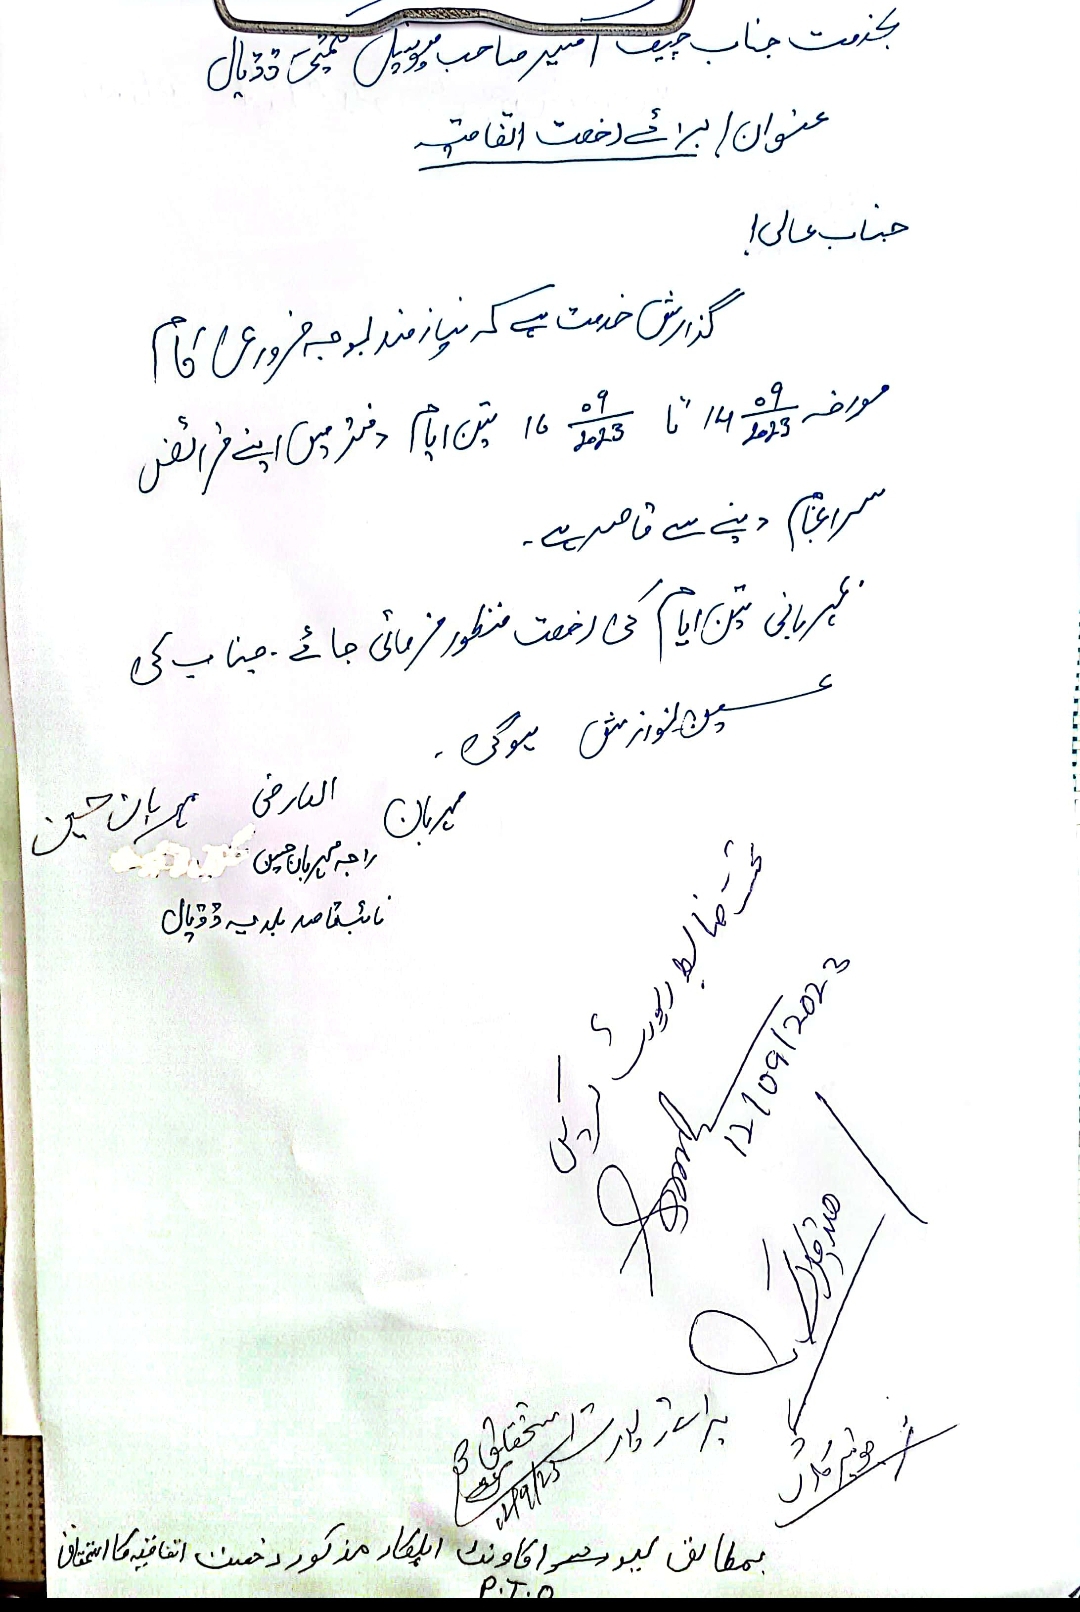 بخدمت جناب چیف آفیسر صاحب میونسپل کمیٹی ڈڈیال
عنوان/ برائے رخصت اتفاقیہ
جناب عالی!
گذارش خدمت ہے کہ نیازمند بوجہ ضروری کام
مورخہ 14 09/2023 تا 16 09/2023 تین ایام دفتر میں اپنے فرائض
سرانجام دینے سے قاصر ہے۔
مہربانی تین ایام کی رخصت منظور فرمائی جائے۔ جناب کی
عین نوازش ہوگی۔
مہربان العارض مہربان حسین
راجہ مہربان حسین
نائب قاصد بلدیہ ڈڈیال
تحت ضابطہ رپورٹ کریں
12/09/2023
جونیئر کلرک
برائے رپورٹ استحقاق
12/9/23
بمطابق لیور سو اکاونٹ اہلکار مذکور رخصت اتفاقیہ کا استحقاق
P.T.O